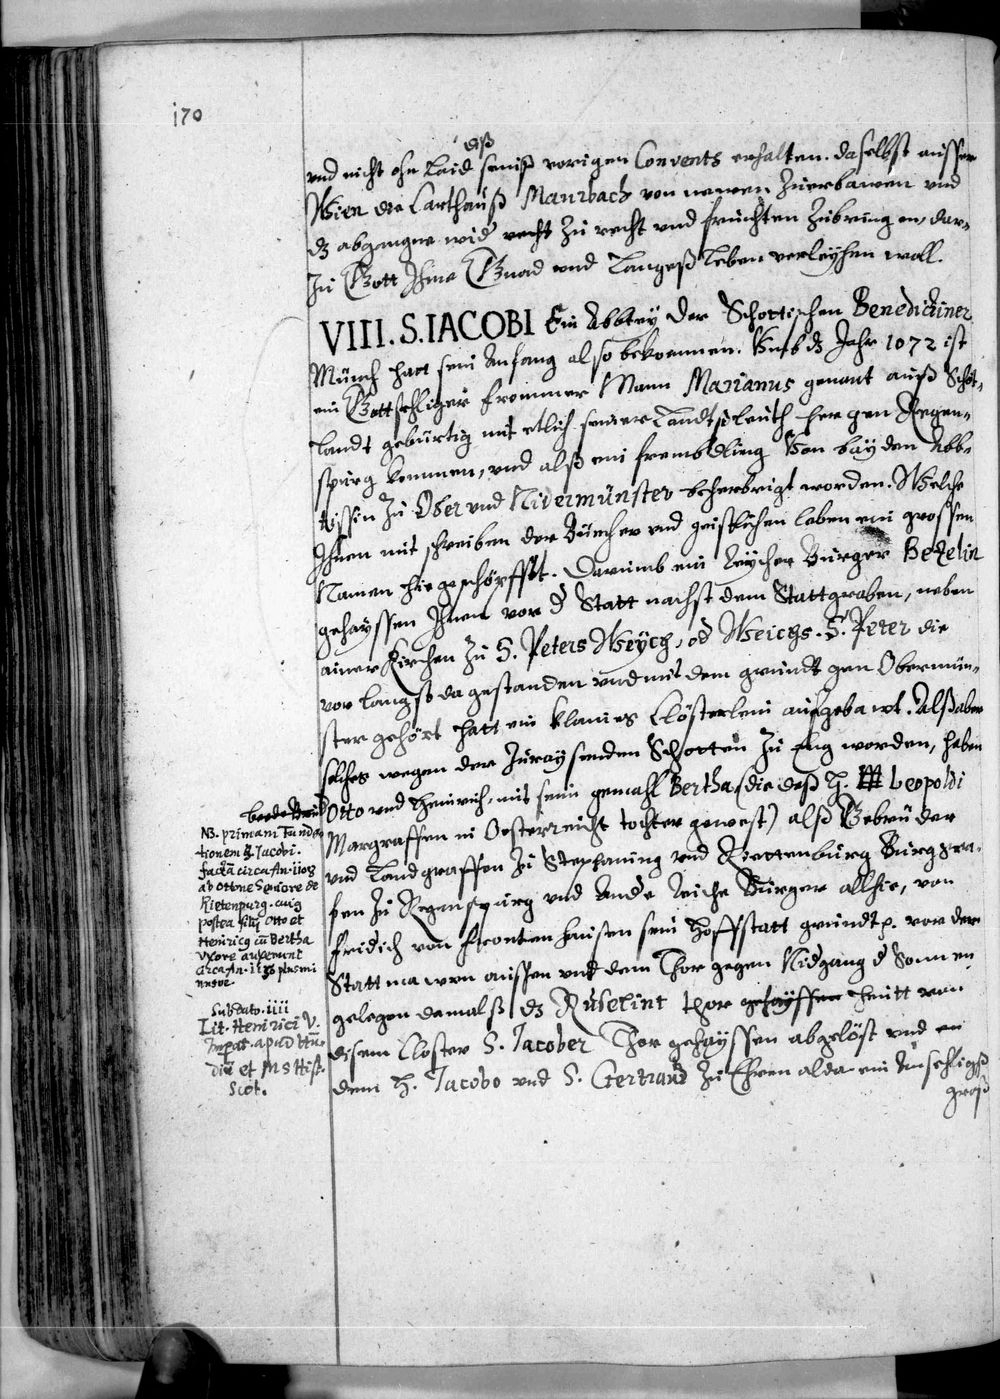 170
diß
vnd nicht ohn Laid seines vorigen Convents erhalten. daselbst ausser
Wien die Carthauß Maurbach von newen Zuerbawen vnd
dz abgangne wid recht zu recht vnd früchten Zubringen, dar-
Zu Gott Ihme Gnad vnd Langeß Leben verleyhen woll.
VIII. S. IACOBI Ein Abbtey der Schottischen Benedictiner
Münch hatt sein Anfang also bekommen. Vmb dz Jahr 1072 ist
ein Gottsehliger frommer Mann Marianus genant auß Schot-
landt gebürtig mit etlich seiner Landtsleüth her gen Regen-
spurg kommen, vnd alß ein frembdling Von bayden Abb-
tissin zu Ober vnd Nidermünster beherbrigt worden. Welche
Ihnen mit schreiben der Büecher vnd geistlichen leben ein grossen
Namen hie geschöpfft. Darumb ein Reycher Burger Bezelin
gehayssen Ihnen vor d Statt nachst dem Stattgraben, neben
ainer Kirchen zu S. Peters Weych, od Weichs. S. Peter die
vor langst da gestanden vnd mit dem grundt gen Obermün-
ster gehört hatt ein klaines Clösterlein aufgebawt. Alß aber
solches wegen der Zuraysenden Schotten zu eng worden, haben
Otto vnd Heinrich, mit sein gemahl Bertha (die deß H. Leopoldi
Margraffen in Oesterreich tochter gewest) alß Gebrüder
vnd Landgraffen zu Stephaning vnd Riettenburg Burggra-
fen zu Regenspurg vnd Ande Reiche Burger allhie, von
Fridich von Frontenhausen sein Hoffstatt grundt p. vor der
Stattmawrn aussen vnd dem Thor gegen Nidgang d Sonnen
gelegen damalß dz Ruselint thor gehayssen heütt von
disem Closter S. Jacober Thor gehayssen abgelöst vnd in
dem H. Jacobo vnd S. Gertraud zu Ehren alda ein Ansehligs
groß
beede
NB. primam Funda
tionem S. Jacobi.
factā circa An. 1108
ab Ottone Seniore de
Rietenpurg. cuiq
postea filij Otto et
Heinricq cū Bertha
Vxore auxerunt
circa An. 1136 plus mi
nusve.
Sub dato. iiii
Lit. Heinrici V.
Imperat. apud Hū-
diū et MS Hist.
Scot.